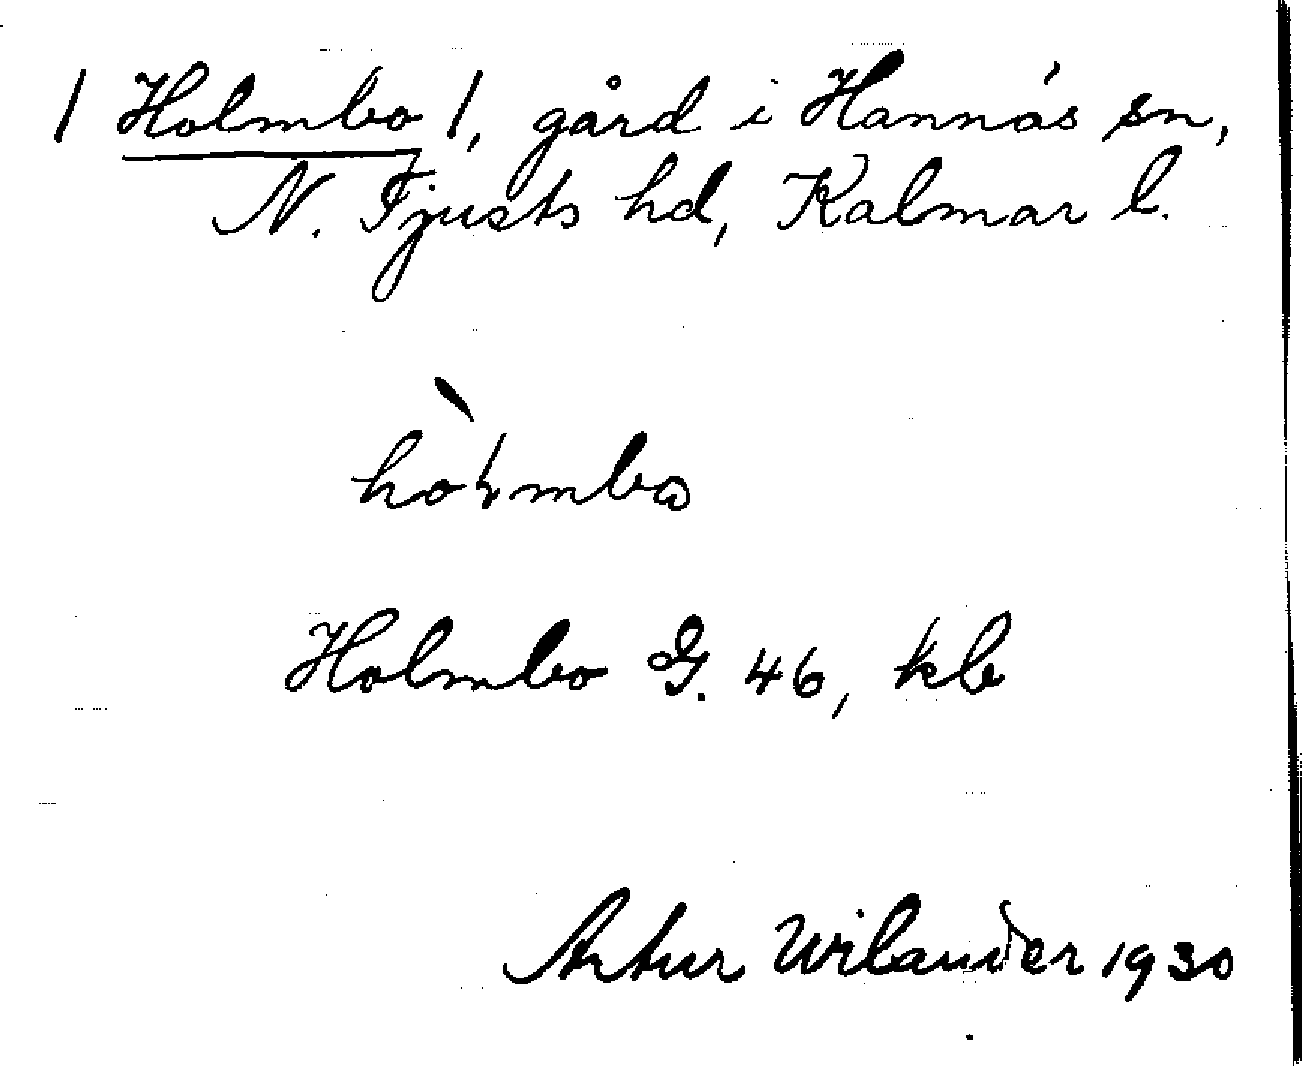 / Holmbo /, gård i Hannäs sn,
N. Tjusts hd, Kalmar l.
Holmbo G. 46, kb
Artur Wilander 1930